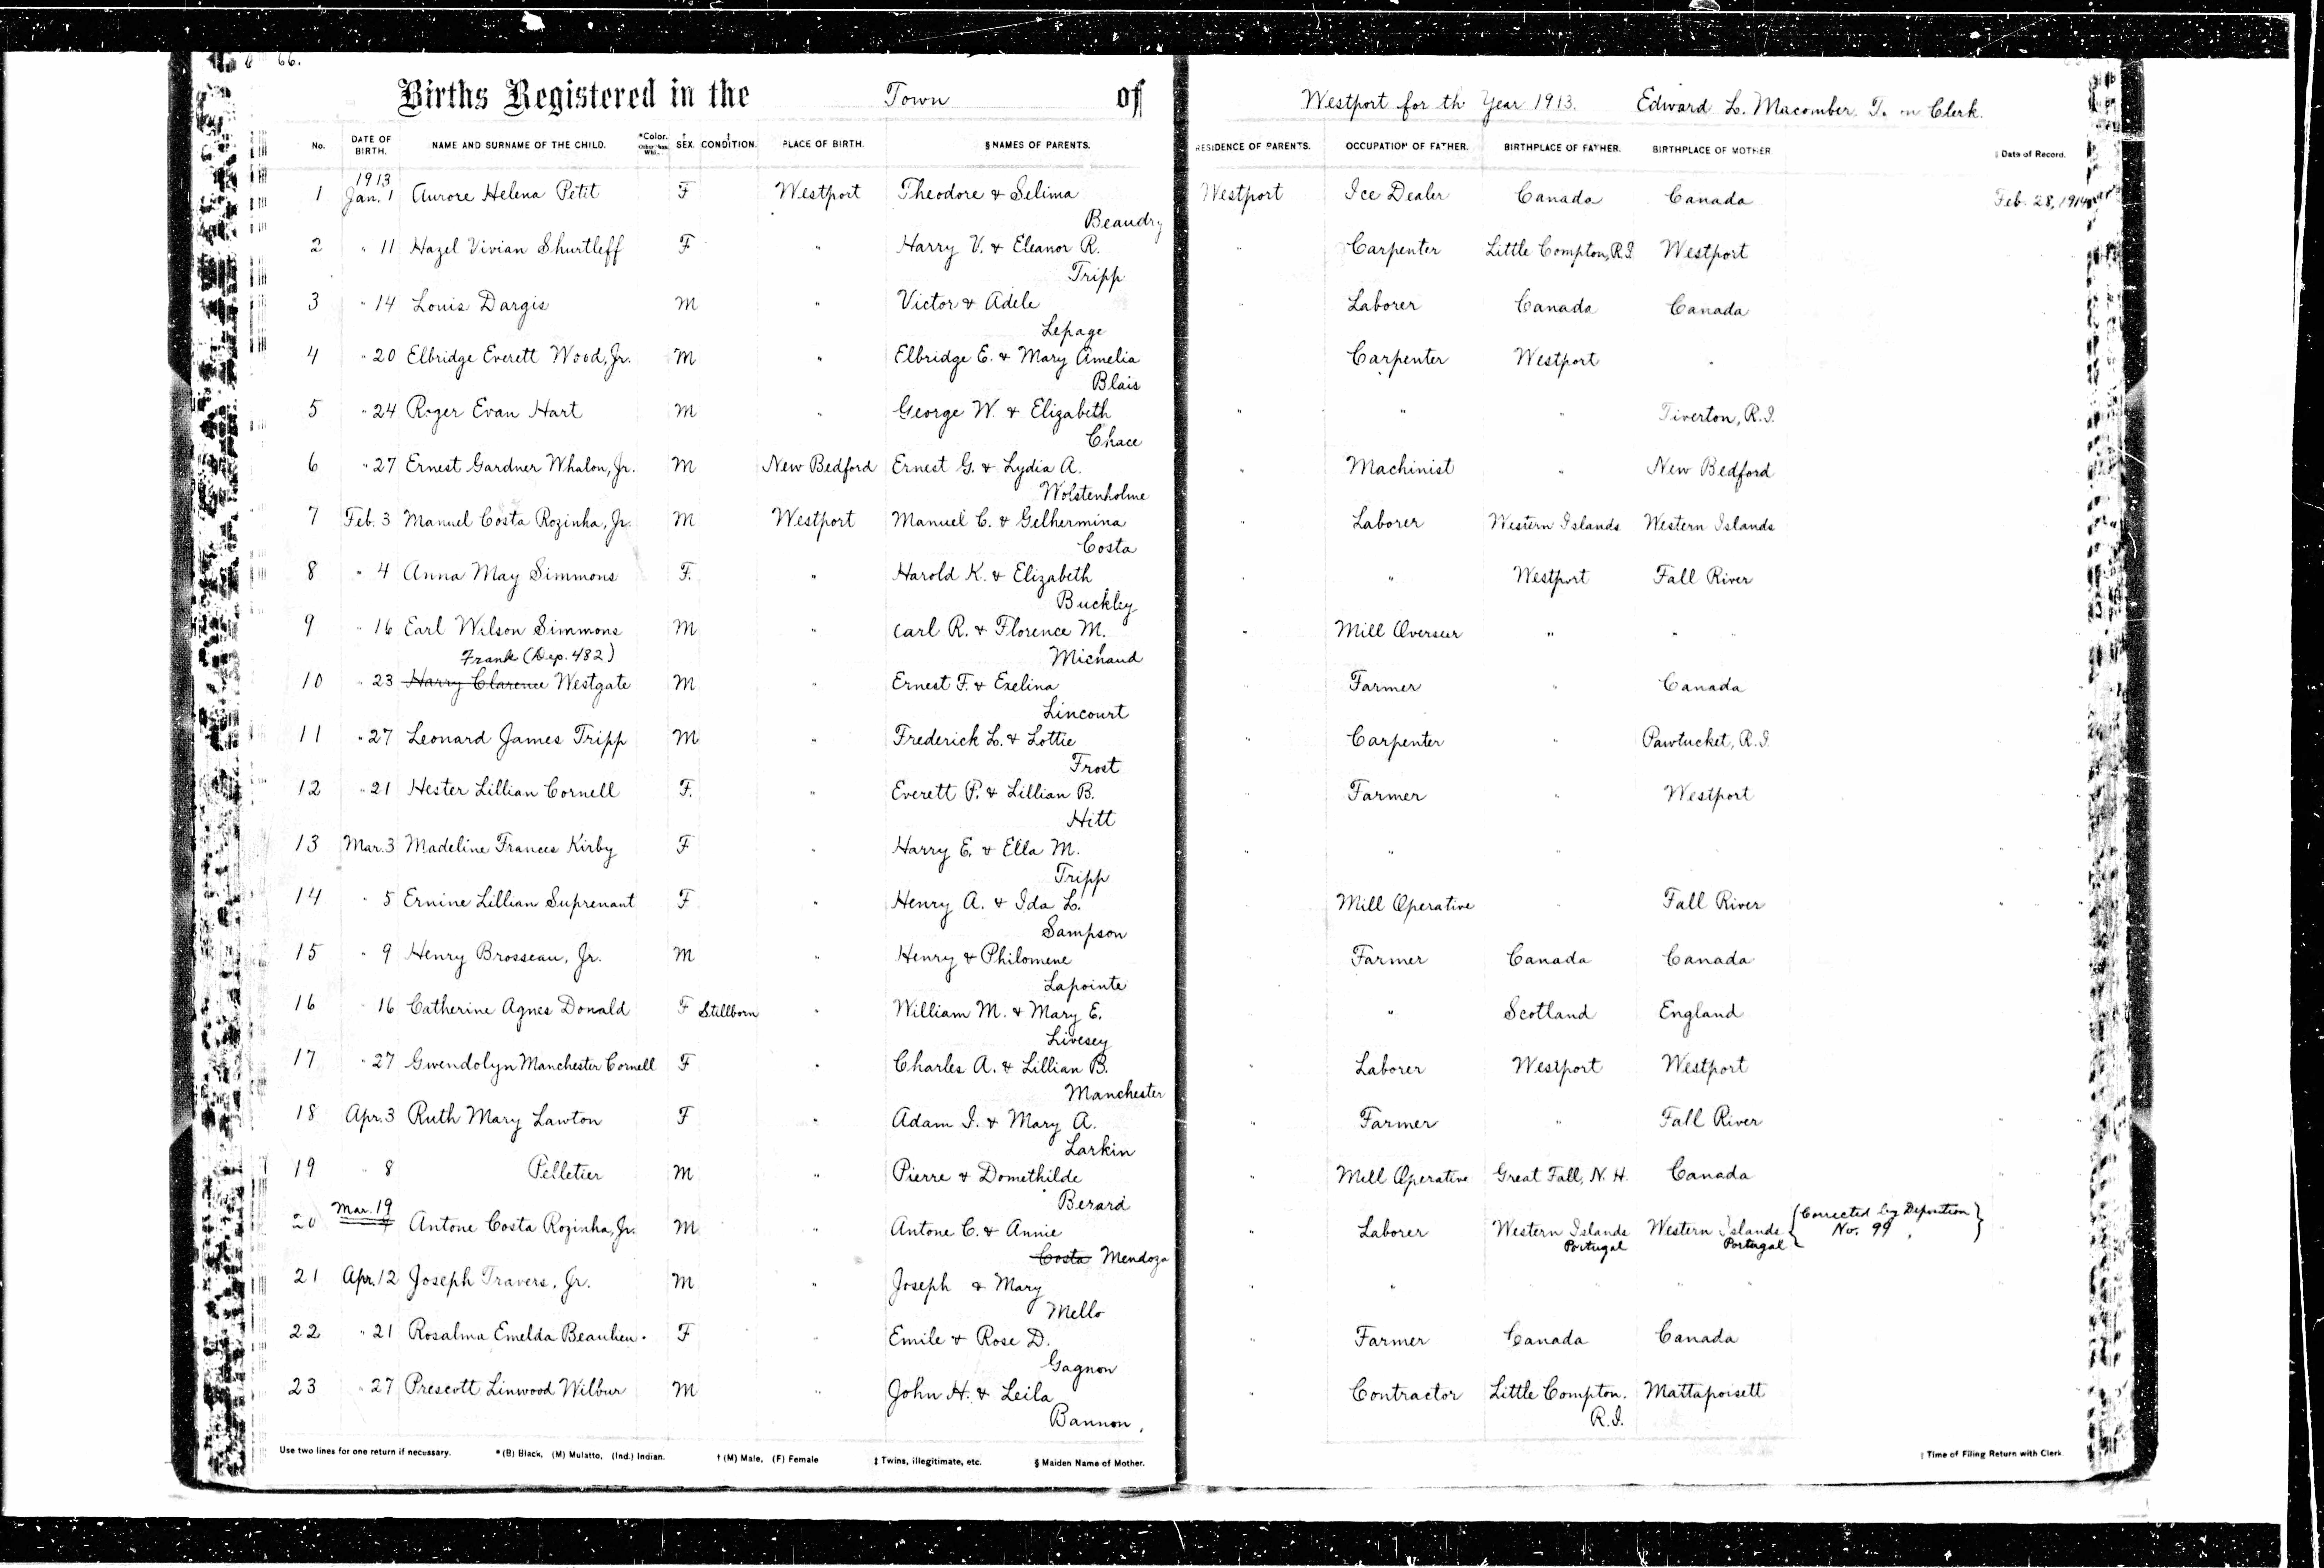 66.
Births Registered in the Town of Westport for th Year 1913. Edward L. Macomber. T. n Clerk.
No. DATE OF BIRTH. NAME AND SURNAME OF THE CHILD. *Color. Other than Whi.. † SEX. ‡ CONDITION. PLACE OF BIRTH. § NAMES OF PARENTS. RESIDENCE OF PARENTS. OCCUPATION OF FATHER. BIRTHPLACE OF FATHER. BIRTHPLACE OF MOTHER. ‖ Date of Record.
1913
1 Jan. 1 Aurore Helena Petit F Westport Theodore & Selima Westport Ice Dealer Canada Canada Feb. 28, 1914
Beaudry
2 " 11 Hazel Vivian Shurtleff F " Harry V. & Eleanor R. " Carpenter Little Compton, R.I. Westport
Tripp
3 " 14 Louis Dargis M " Victor & Adele " Laborer Canada Canada
Lepage
4 " 20 Elbridge Everett Wood, Jr. M " Elbridge E. & Mary Amelia Carpenter Westport "
Blais
5 " 24 Roger Evan Hart M " George W. & Elizabeth " " " Tiverton, R.I.
Chace
6 " 27 Ernest Gardner Whalon, Jr. M New Bedford Ernest G. & Lydia A. " Machinist " New Bedford
Wolstenholme
7 Feb. 3 Manuel Costa Rozinha, Jr. M Westport Manuel C. & Gelhermina " Laborer Western Islands Western Islands
Costa
8 " 4 Anna May Simmons F. " Harold K. & Elizabeth " " Westport Fall River
Buckley
9 " 16 Earl Wilson Simmons M " Carl R. & Florence M. " Mill Overseer " " "
Frank (Dep. 482) Michaud
10 " 23 Harry Clarence Westgate M " Ernest F. & Exelina Farmer " Canada
Lincourt
11 " 27 Leonard James Tripp M " Frederick L. & Lottie " Carpenter " Pawtucket, R.I.
Frost
12 " 21 Hester Lillian Cornell F. " Everett P. & Lillian B. " Farmer " Westport
Hitt
13 Mar. 3 Madeline Frances Kirby F " Harry E. & Ella M. " " " "
Tripp
14 " 5 Ernine Lillian Suprenant F " Henry A. & Ida L. Mill Operative " Fall River
Sampson
15 " 9 Henry Brosseau, Jr. M " Henry & Philomene Farmer Canada Canada
Lapointe
16 " 16 Catherine Agnes Donald F Stillborn " William M. & Mary E. " Scotland England
Livesey
17 " 27 Gwendolyn Manchester Cornell F " Charles A. & Lillian B. " Laborer Westport Westport
Manchester
18 Apr. 3 Ruth Mary Lawton F " Adam I. & Mary A. " Farmer " Fall River
Larkin
19 " 8 Pelletier M " Pierre & Domethilde " Mill Operative Great Fall, N. H. Canada
Berard
Mar. 19 {Corrected by Deposition}
20 Antone Costa Rozinha, Jr. M " Antone C. & Annie " Laborer Western Islands Western Islands No. 99
Portugal Portugal
Costa Mendoza
21 Apr. 12 Joseph Travers, Jr. M " Joseph & Mary " " " " "
Mello
22 " 21 Rosalma Emelda Beaulieu. F " Emile & Rose D. " Farmer Canada Canada
Gagnon
23 " 27 Prescott Linwood Wilbur M " John H. & Leila " Contractor Little Compton, Mattapoisett
Bannon, R.I.
Use two lines for one return if necessary. *(B) Black, (M) Mulatto, (Ind.) Indian. † (M) Male, (F) Female ‡ Twins, illegitimate, etc. § Maiden Name of Mother. ‖ Time of Filing Return with Clerk.